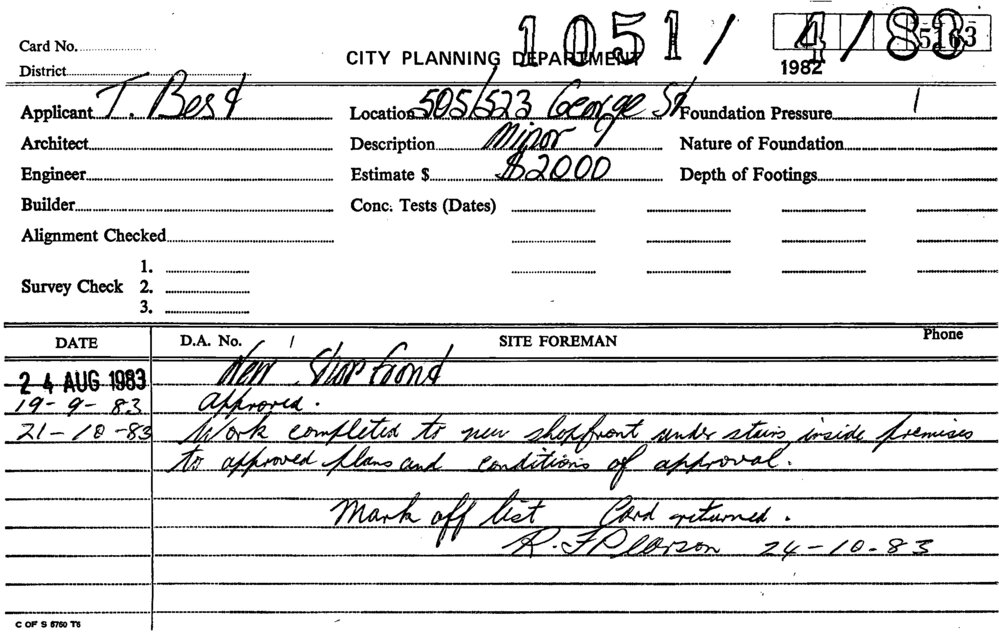 1051/ 4/83
5163
Card No.
CITY PLANNING DEPARTMENT
1982
District
Applicant T. Best Location 505/523 George St Foundation Pressure
Architect Description Minor Nature of Foundation
Engineer Estimate $ $2000 Depth of Footings
Builder Conc. Tests (Dates)
Alignment Checked
1.
Survey Check 2.
3.
DATE D.A. No. SITE FOREMAN Phone
24 AUG 1983 New Shop Front
19-9-83 Approved.
21-10-83 Work completed to new shopfront under stairs, inside premises
to approved plans and conditions of approval.
Mark off list Card returned.
R. F Pearson 24-10-83
C OF S 5750 T5